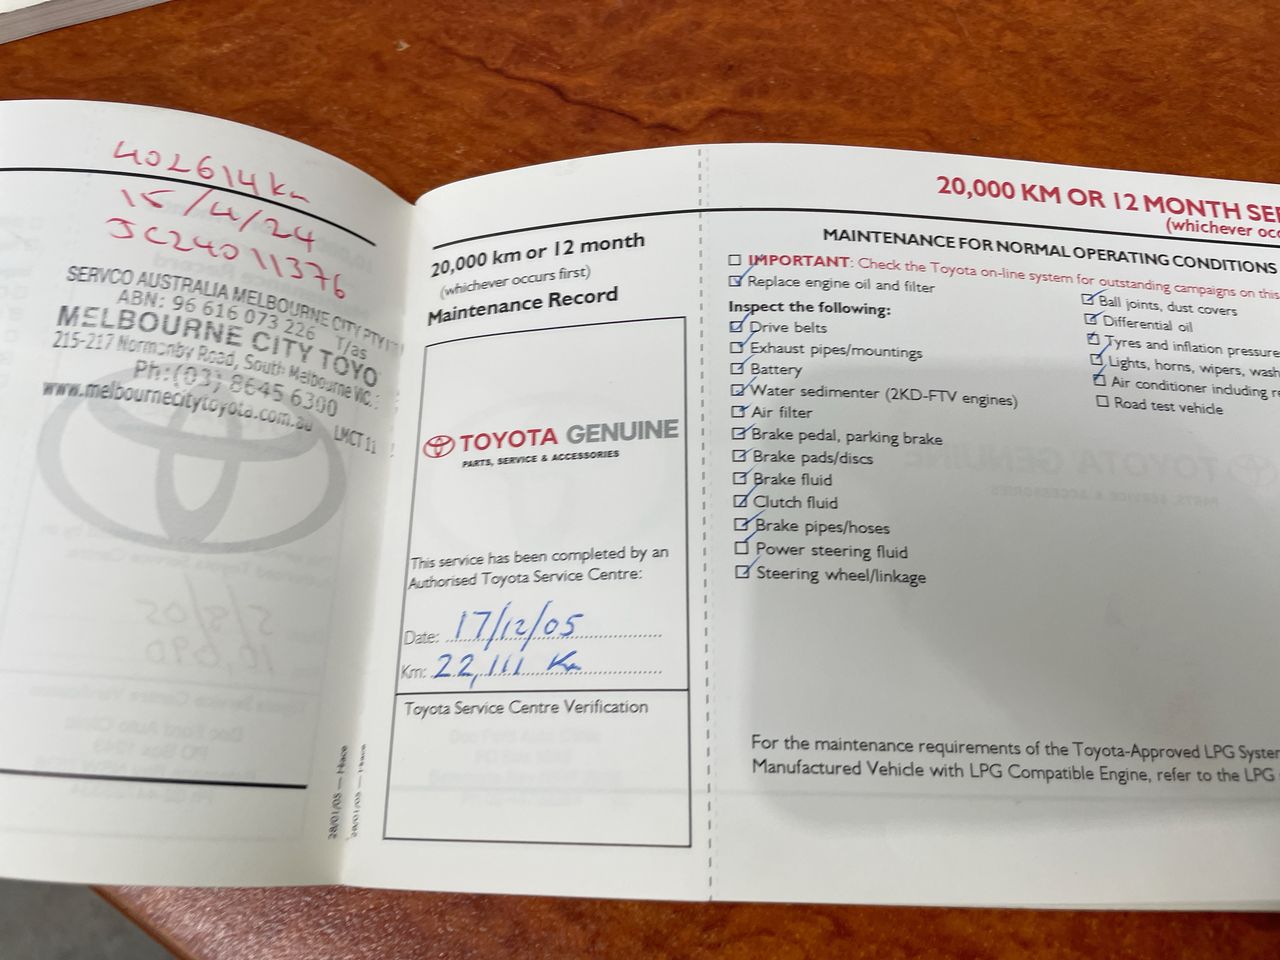 402614 km
15/4/24
JC24011376
SERVCO AUSTRALIA MELBOURNE CITY PTY LTD
ABN: 96 616 073 226 T/as
MELBOURNE CITY TOYO
215-217 Normanby Road, South Melbourne VIC.:
Ph:(03) 8645 6300
www.melbournecitytoyota.com.au LMCT 11
28/01/05 — Hiace
28/01/05 — Hiace
20,000 km or 12 month
(whichever occurs first)
Maintenance Record
TOYOTA GENUINE
PARTS, SERVICE & ACCESSORIES
This service has been completed by an
Authorised Toyota Service Centre:
Date: 17/12/05
Km: 22,111 Km
Toyota Service Centre Verification
20,000 KM OR 12 MONTH SE
(whichever occ
MAINTENANCE FOR NORMAL OPERATING CONDITIONS
IMPORTANT: Check the Toyota on-line system for outstanding campaigns on this
Replace engine oil and filter
Inspect the following:
Drive belts
Exhaust pipes/mountings
Battery
Water sedimenter (2KD-FTV engines)
Air filter
Brake pedal, parking brake
Brake pads/discs
Brake fluid
Clutch fluid
Brake pipes/hoses
Power steering fluid
Steering wheel/linkage
Ball joints, dust covers
Differential oil
Tyres and inflation pressure
Lights, horns, wipers, wash
Air conditioner including re
Road test vehicle
For the maintenance requirements of the Toyota-Approved LPG System
Manufactured Vehicle with LPG Compatible Engine, refer to the LPG